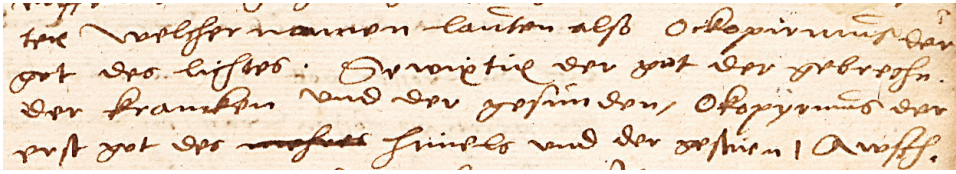 ter Welcher namen lauten also Ockopirnus der
got des lichtes. Swixtix der got der gebreche.
der krancken und der gesunden, Okopyrnus der
erst got des himels und der gestirn